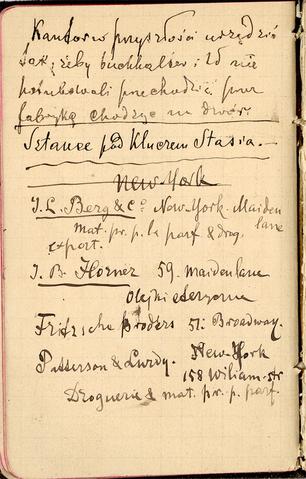 Kantor w przyszłości urządzić
tak, żeby buchhalter i td nie
potrzebowali przechodzić przez
fabrykę chodząc na dwór.
Sztance pod kluczem Stasia.
New-York
J. L. Berg & Co New-York. Maiden
lane
mat. pr. p. la parf & drog.
export.
J. B. Horner 59. maiden lane
Olejki eteryczne
Fritzsche broders 51. Broadway.
New-York
Patterson & 158 Wiliam-str
Droguerie & mat. pr. p. parf.